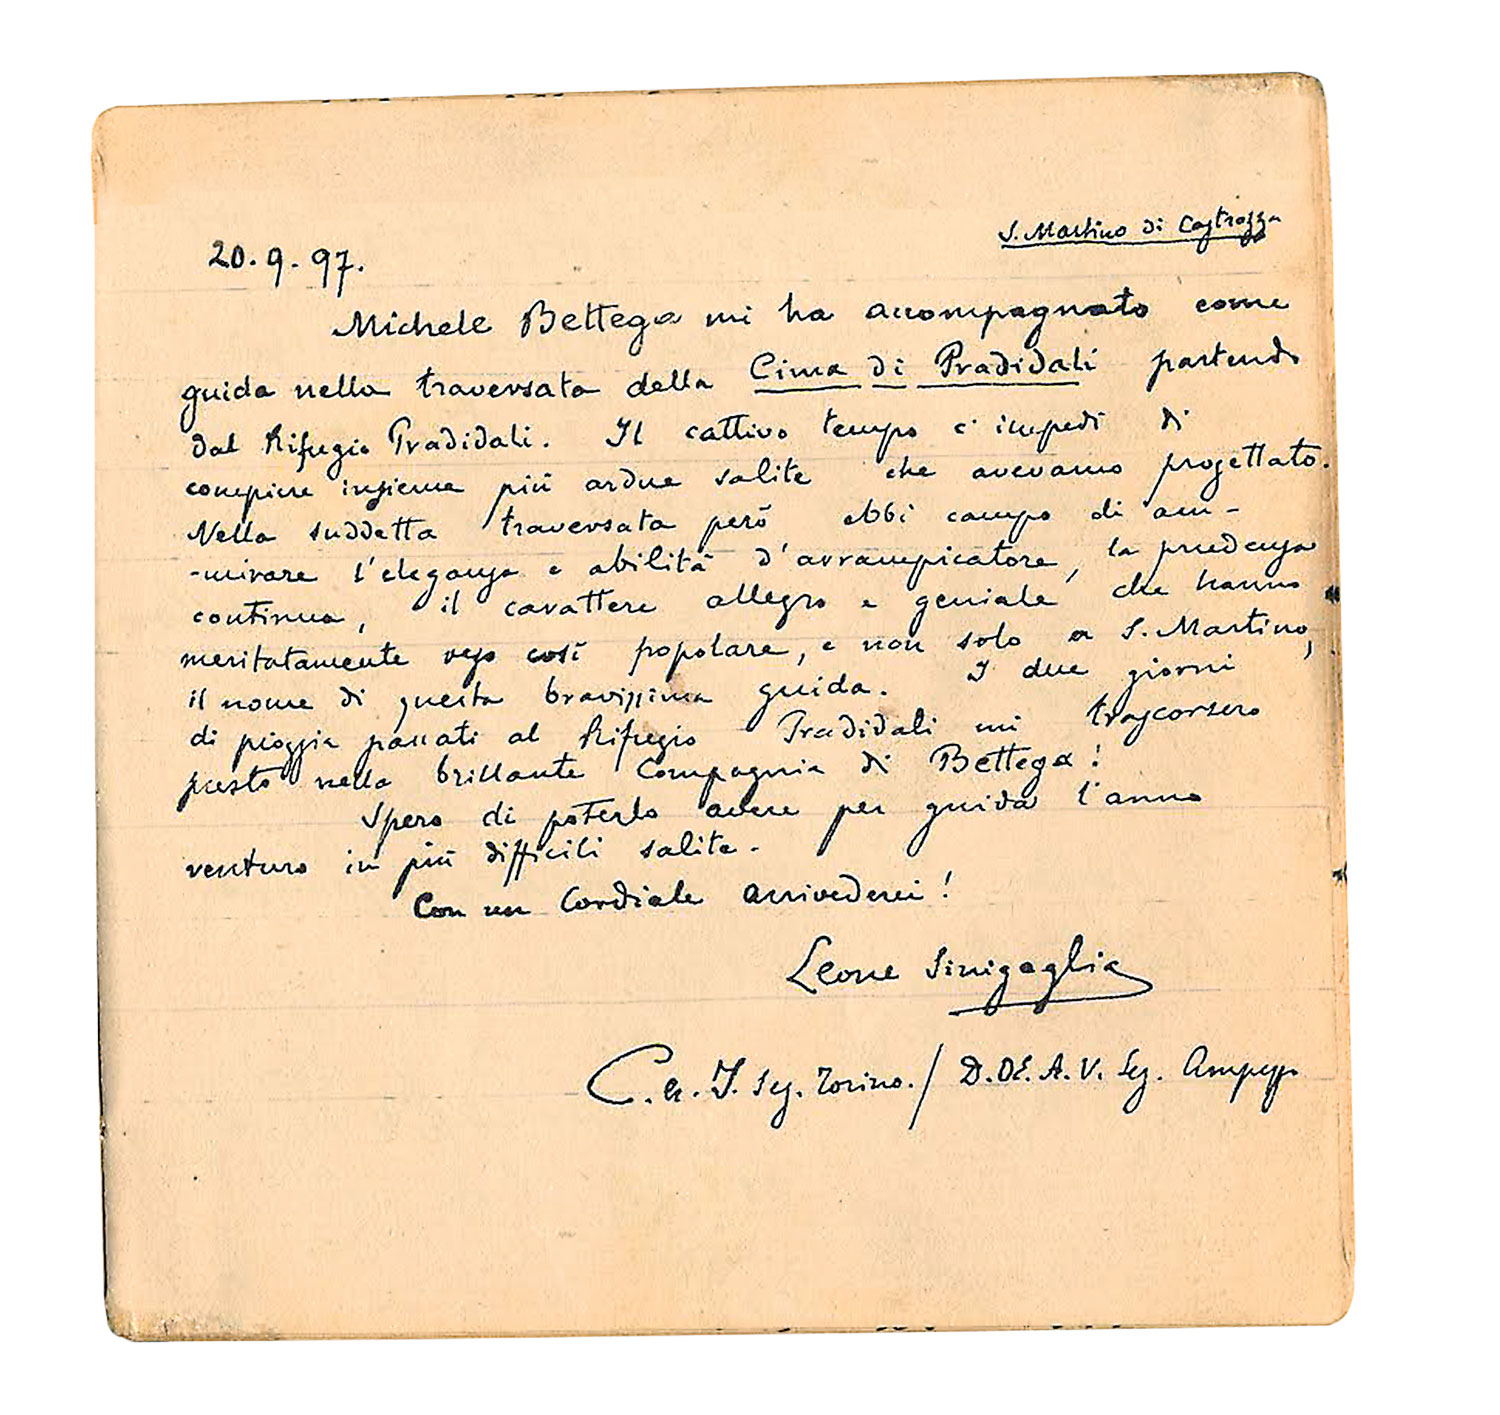 S. Martino di Castrozza
20. 9. 97.
Michele Bettega mi ha accompagnato come
guida nella traversata della Cima di Pradidali partendo
dal Rifugio Pradidali. Il cattivo tempo c'impedì di
compiere insieme più ardue salite che avevamo progettato.
Nella suddetta traversata però ebbi campo di am-
-mirare l'eleganza e abilità d'arrampicatore, la prudenza
continua, il carattere allegro e geniale che hanno
meritatamente reso così popolare, e non solo a S. Martino,
il nome di questa bravissima guida. I due giorni
di pioggia passati al Rifugio Pradidali mi trascorsero
presto nella brillante Compagnia di Bettega!
Spero di poterlo avere per guida l'anno
venturo in più difficili salite.
Con un Cordiale arrivederci!
Leone Sinigaglia
C. A. I. Sez. Torino. / D.OE.A.V. Sez. Ampezzo